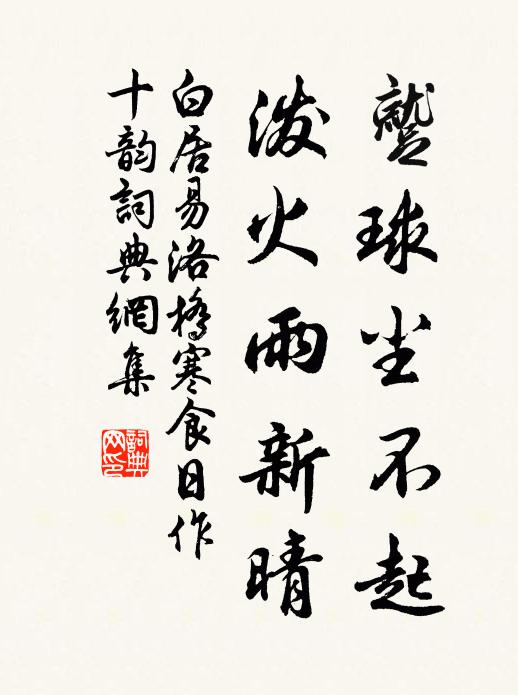 蹵球尘不起
泼火雨新晴
白居易洛橋寒食日作
十韵詞典網集
詞典
网印